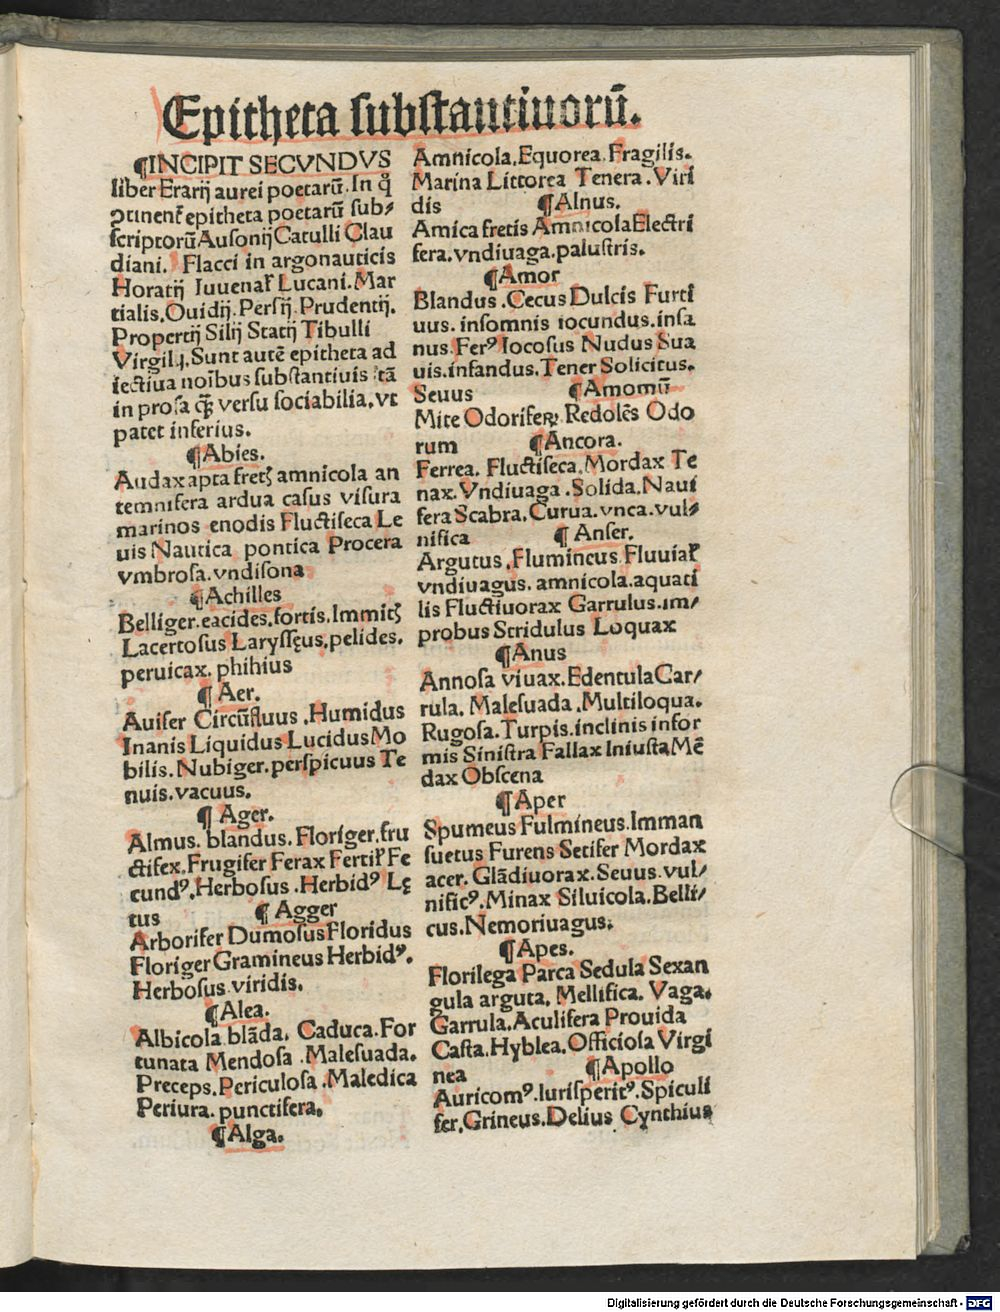 Epitheta ſubſtantiuorū.
¶INCIPIT SECVNDVS
liber Erarij aurei poetarū. In q̊
ꝯtinent᷑ epitheta poetarū ſub⸗
ſcriptorū Auſonij Catulli Clau
diani. Flacci in argonauticis
Horatij Iuuenal᷑ Lucani. Mar
tialis. Ouidij. Perſij. Prudentij.
Propertij Silij Statij Tibulli
Virgilij. Sunt autē epitheta ad
iectiua noībus ſubſtantiuis tā
in proſa q̄ꝫ verſu ſociabilia. vt
patet inferius.
¶Abies.
Audax apta fretꝭ amnicola an
temnifera ardua caſus viſura
marinos enodis Fluctiſeca Le
uis Nautica pontica Procera
vmbroſa. vndiſona
¶Achilles
Belliger. eacides. fortis. Immitꝭ
Lacertoſus Laryſſęus. pelides.
peruicax. phihius
¶Aer.
Auifer Circūfluus. Humidus
Inanis Liquidus Lucidus Mo
bilis. Nubiger. perſpicuus Te
nuis. vacuus.
¶Ager.
Almus. blandus. Floriger. fru
ctifex. Frugifer Ferax Fertil᷑ Fe
cundꝰ. Herboſus. Herbidꝰ Lę
tus
¶Agger
Arborifer Dumoſus Floridus
Floriger Gramineus Herbidꝰ.
Herboſus viridis.
¶Alea.
Albicola blāda. Caduca. For
tunata Mendoſa. Maleſuada.
Preceps. Periculoſa. Maledica
Periura. punctifera.
¶Alga.
Amnicola. Equorea. Fragilis.
Marina Littorea Tenera. Viri
dis
¶Alnus.
Amica fretis Amnicola Electri
fera. vndiuaga. paluſtris.
¶Amor
Blandus. Cecus Dulcis Furti
uus. inſomnis iocundus. inſa
nus. Ferꝰ Iocoſus Nudus Sua
uis. infandus. Tener Solicitus.
Seuus
¶Amomū
Mite Odoriferꝝ Redolēs Odo
rum
¶Ancora.
Ferrea. Fluctiſeca. Mordax Te
nax. Vndiuaga. Solida. Naui
fera Scabra. Curua. vnca. vul⸗
nifica
¶Anſer.
Argutus. Flumineus Fluuial᷑
vndiuagus. amnicola. aquati
lis Fluctiuorax Garrulus. im⸗
probus Stridulus Loquax
¶Anus
Annoſa viuax. Edentula Gar⸗
rula. Maleſuada. Multiloqua.
Rugoſa. Turpis. inclinis infor
mis Siniſtra Fallax Iniuſta Mē
dax Obſcena
¶Aper
Spumeus Fulmineus. Imman
ſuetus Furens Setifer Mordax
acer. Glādiuorax. Seuus. vul⸗
nificꝰ. Minax Siluicola. Belli⸗
cus. Nemoriuagus.
¶Apes.
Florilega Parca Sedula Sexan
gula arguta. Mellifica. Vaga.
Garrula. Aculifera Prouida
Caſta. Hyblea. Officioſa Virgi
nea
¶Apollo
Auricomꝰ. Iuriſperitꝰ. Spiculi
fer. Grineus. Delius Cynthius
Digitalisierung gefördert durch die Deutsche Forschungsgemeinschaft - DFG